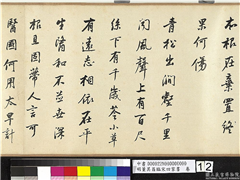 本根在棄置終
果何傷
青松出澗壑千里
聞風聲上有百尺
絲下有千歲苓小草
有遠志相依在平
生醫和不並世深
根且固蒂人言可
醫國何用太早計
12